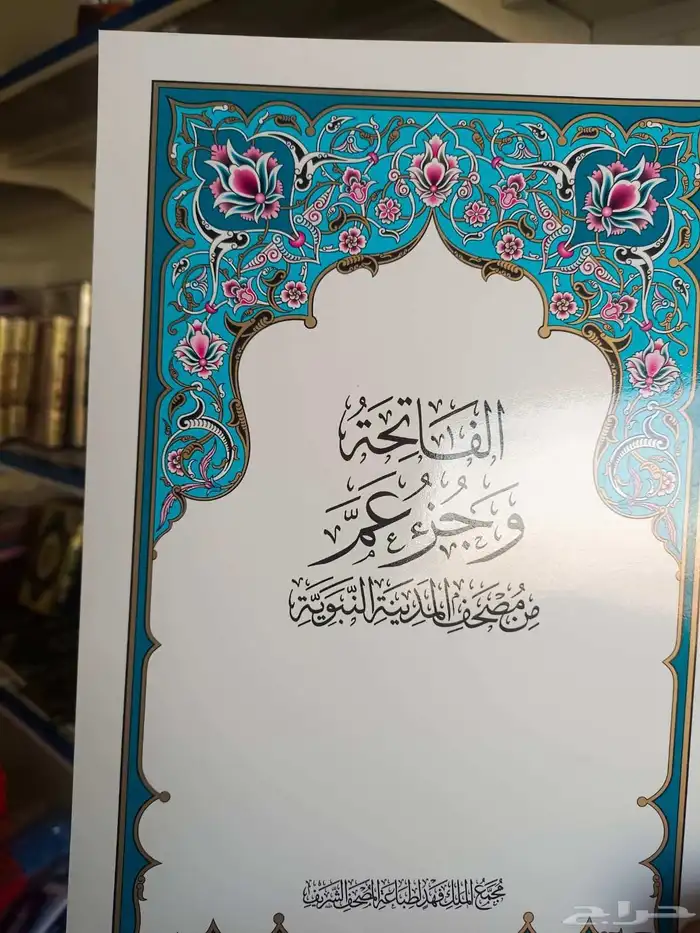 الفَاتِحَةُ
وَجُزْءُ عَمَّ
مِن مُصْحَفِ المَدِينَةِ النَّبَوِيَّةِ
مُجَمَّعُ المَلِك فَهْد لِطِبَاعَةِ المُصْحَفِ الشَّرِيفِ
حراج